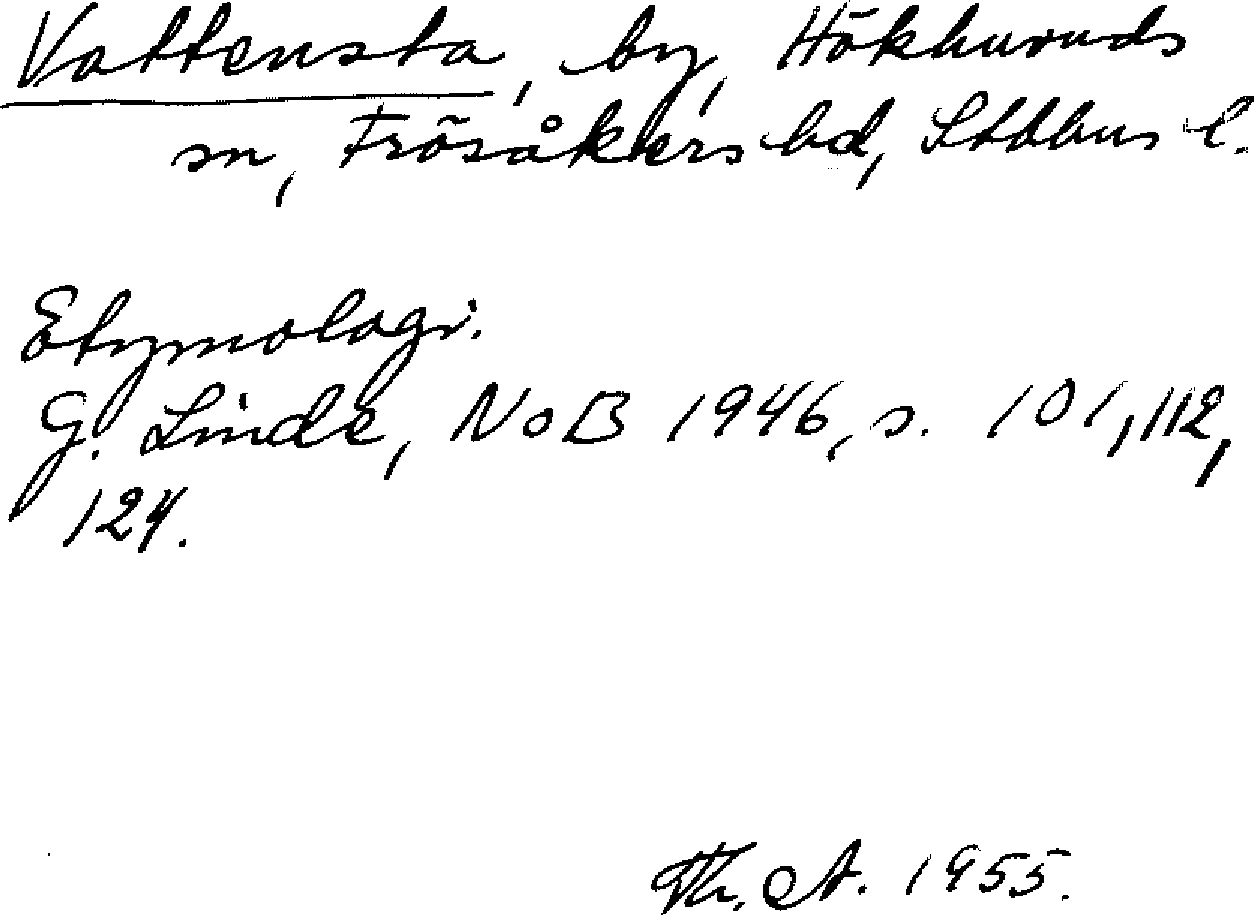 Vattensta, by, Hökhuvuds
sn, Frösåkers hd, Sthlms l.
Etymologi.
G. Linde, NoB 1946, s. 101, 112,
124.
Th. A. 1955.